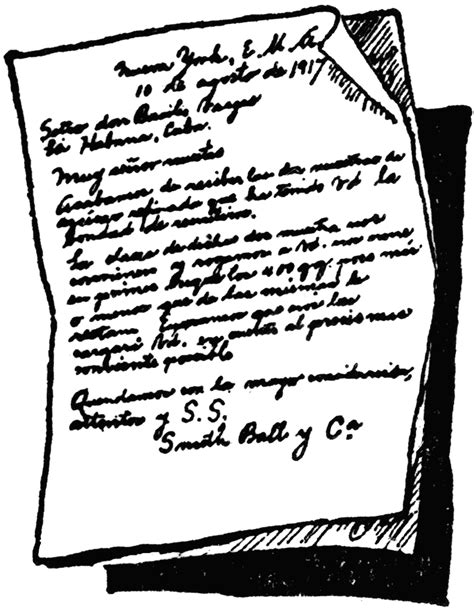 Nueva York, E. U. A.
10 de agosto de 1917
Señor don Basilio Vargas
La Habana, Cuba.
Muy señor nuestro
Acabamos de recibir las dos muestras de
azúcar refinado que ha tenido Vd la
bondad de remitirnos.
La clase de dichas dos muestras nos
convienen y rogamos a Vd. nos
en primer los 400 qq. poco más
o menos que de las mismas le
restan. Esperamos que nos las
cargará Vd. en cuenta al precio mas
conveniente posible
Quedamos con la mayor consideración,
attentos y S. S.
Smith Ball y Ca